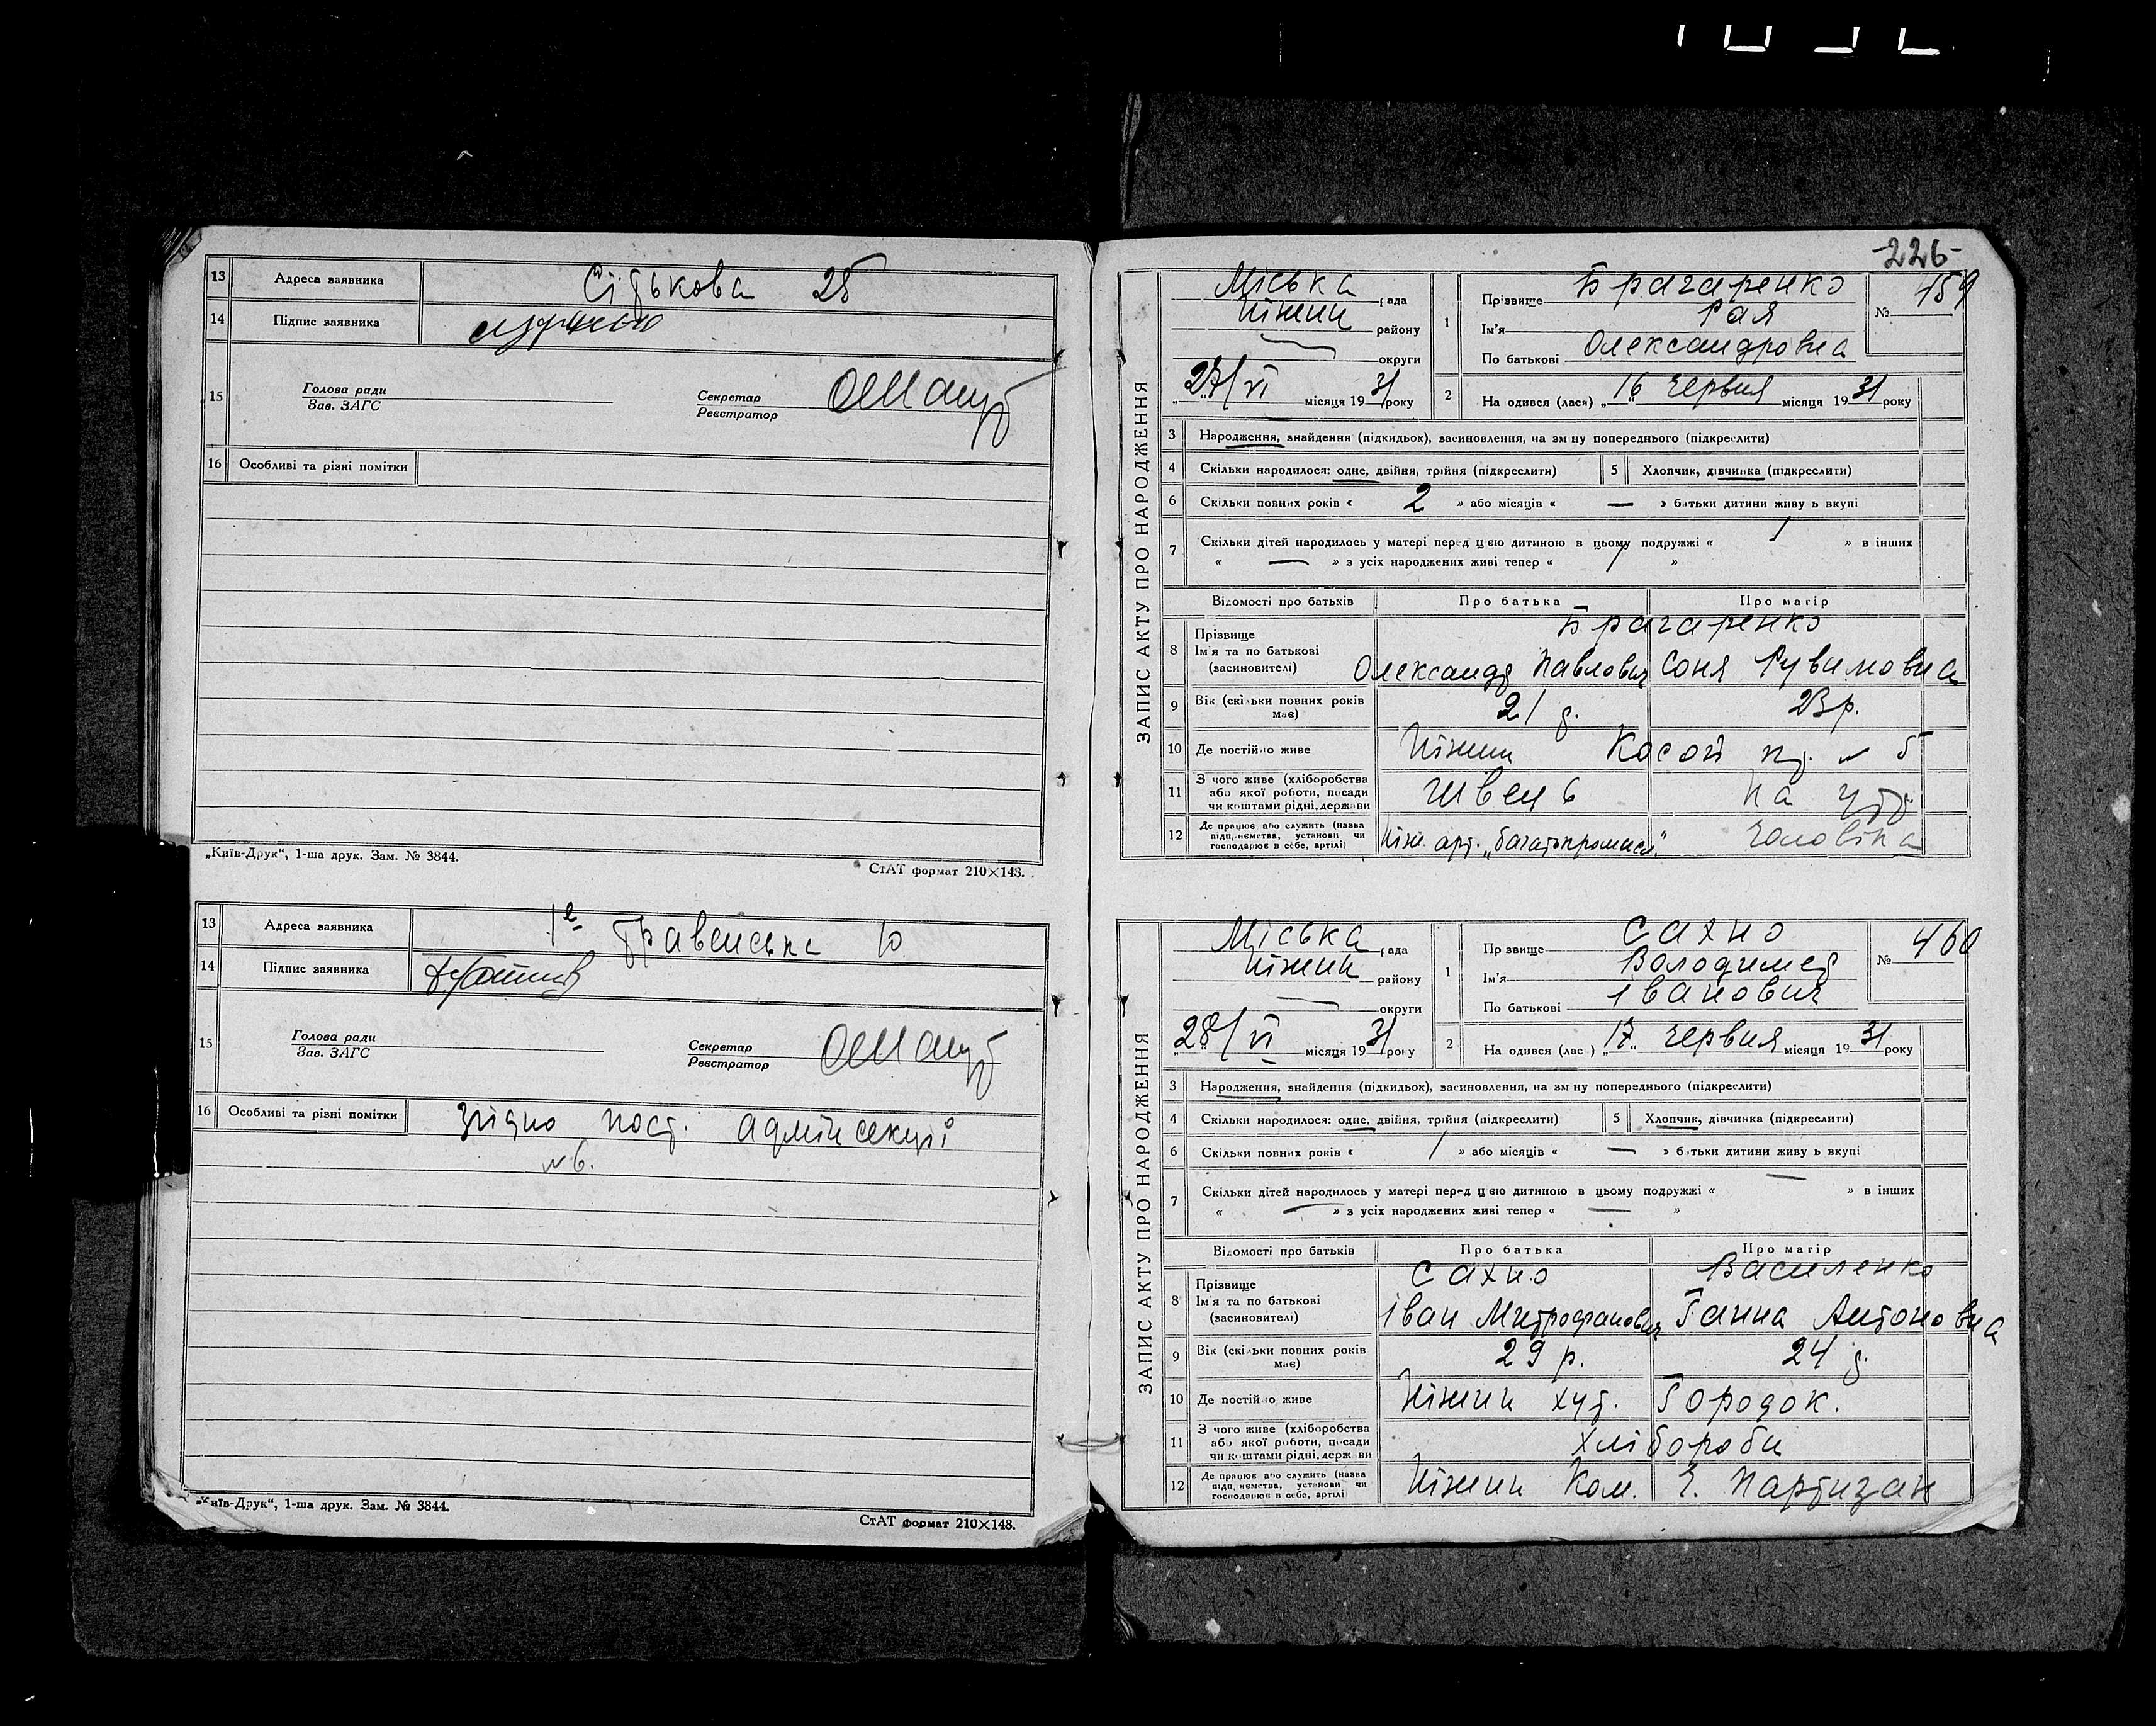 13 Адреса заявника Сітькова 28
14 Підпис заявника
15 Голова ради
Зав. ЗАГС
Секретар
Реєстратор
16 Особливі та різні помітки
„Київ-Друк“, 1-ша друк. Зам. № 3844.
СтАТ формат 210×148.
13 Адреса заявника 1а Травенська 10
14 Підпис заявника
15 Голова ради
Зав. ЗАГС
Секретар
Реєстратор
16 Особливі та різні помітки Згідно пост. адмінсекції
№ 6.
„Київ-Друк“, 1-ша друк. Зам. № 3844.
СтАТ формат 210×148.
-226-
ЗАПИС АКТУ ПРО НАРОДЖЕННЯ
Міська рада
Ніжин району
округи
„27“/VI місяця 1931 року
1 Прізвище Брагаренко
Ім'я Рая
По батькові Олександровна
№ 459
2 На одився (лася) „16“ червня місяця 1931 року
3 Народження, знайдення (підкидьок), засиновлення, на зм ну попереднього (підкреслити)
4 Скільки народилося: одне, двійня, трійня (підкреслити) 5 Хлопчик, дівчинка (підкреслити)
6 Скільки повних років « 2 » або місяців « — » батьки дитини живу ь вкупі
7 Скільки дітей народилось у матері перед цією дитиною в цьому подружжі « 1 » в інших
« — » з усіх народжених живі тепер « 1 »
Відомості про батьків Про батька Про матір
8 Прізвище Брагаренко
Ім'я та по батькові
(засиновителі) Олександр Павлович Соня Рувимовна
9 Вік (скільки повних років має) 21 р. 23 р.
10 Де постійно живе Ніжин Косой пр. № 5
11 З чого живе (хліборобства
або якої роботи, посади
чи коштами рідні, держави Швець На утр
12 Де працює або служить (назва
підприємства, установи чи
господарює в себе, артілі) Ніж. арт. „багатопромисл.“ чоловіка
ЗАПИС АКТУ ПРО НАРОДЖЕННЯ
Міська рада
Ніжин району
округи
„28“/VI місяця 1931 року
1 Пр звище Сахно
Ім'я Володимер
По батькові Іванович
№ 460
2 На одився (лас ) „17“ червня місяця 1931 року
3 Народження, знайдення (підкидьок), засиновлення, на зм ну попереднього (підкреслити)
4 Скільки народилося: одне, двійня, трійня (підкреслити) 5 Хлопчик, дівчинка (підкреслити)
6 Скільки повних років « 1 » або місяців « — » батьки дитини живу ь вкупі
7 Скільки дітей народилось у матері перед цією дитиною в цьому подружжі « — » в інших
« — » з усіх народжених живі тепер « — »
Відомості про батьків Про батька Про матір
8 Прізвище Сахно Василенко
Ім'я та по батькові
(засиновителі) Іван Митрофанович Ганна Антоновна
9 Вік (скільки повних років має) 29 р. 24 р.
10 Де постійно живе Ніжин хут. Городок.
11 З чого живе (хліборобства
або якої роботи, посади
чи коштами рідні, держави хлібороби
12 Де працює або служить (назва
підприємства, установи чи
господарює в себе, артілі) Ніжин Ком. Ч. Партизан